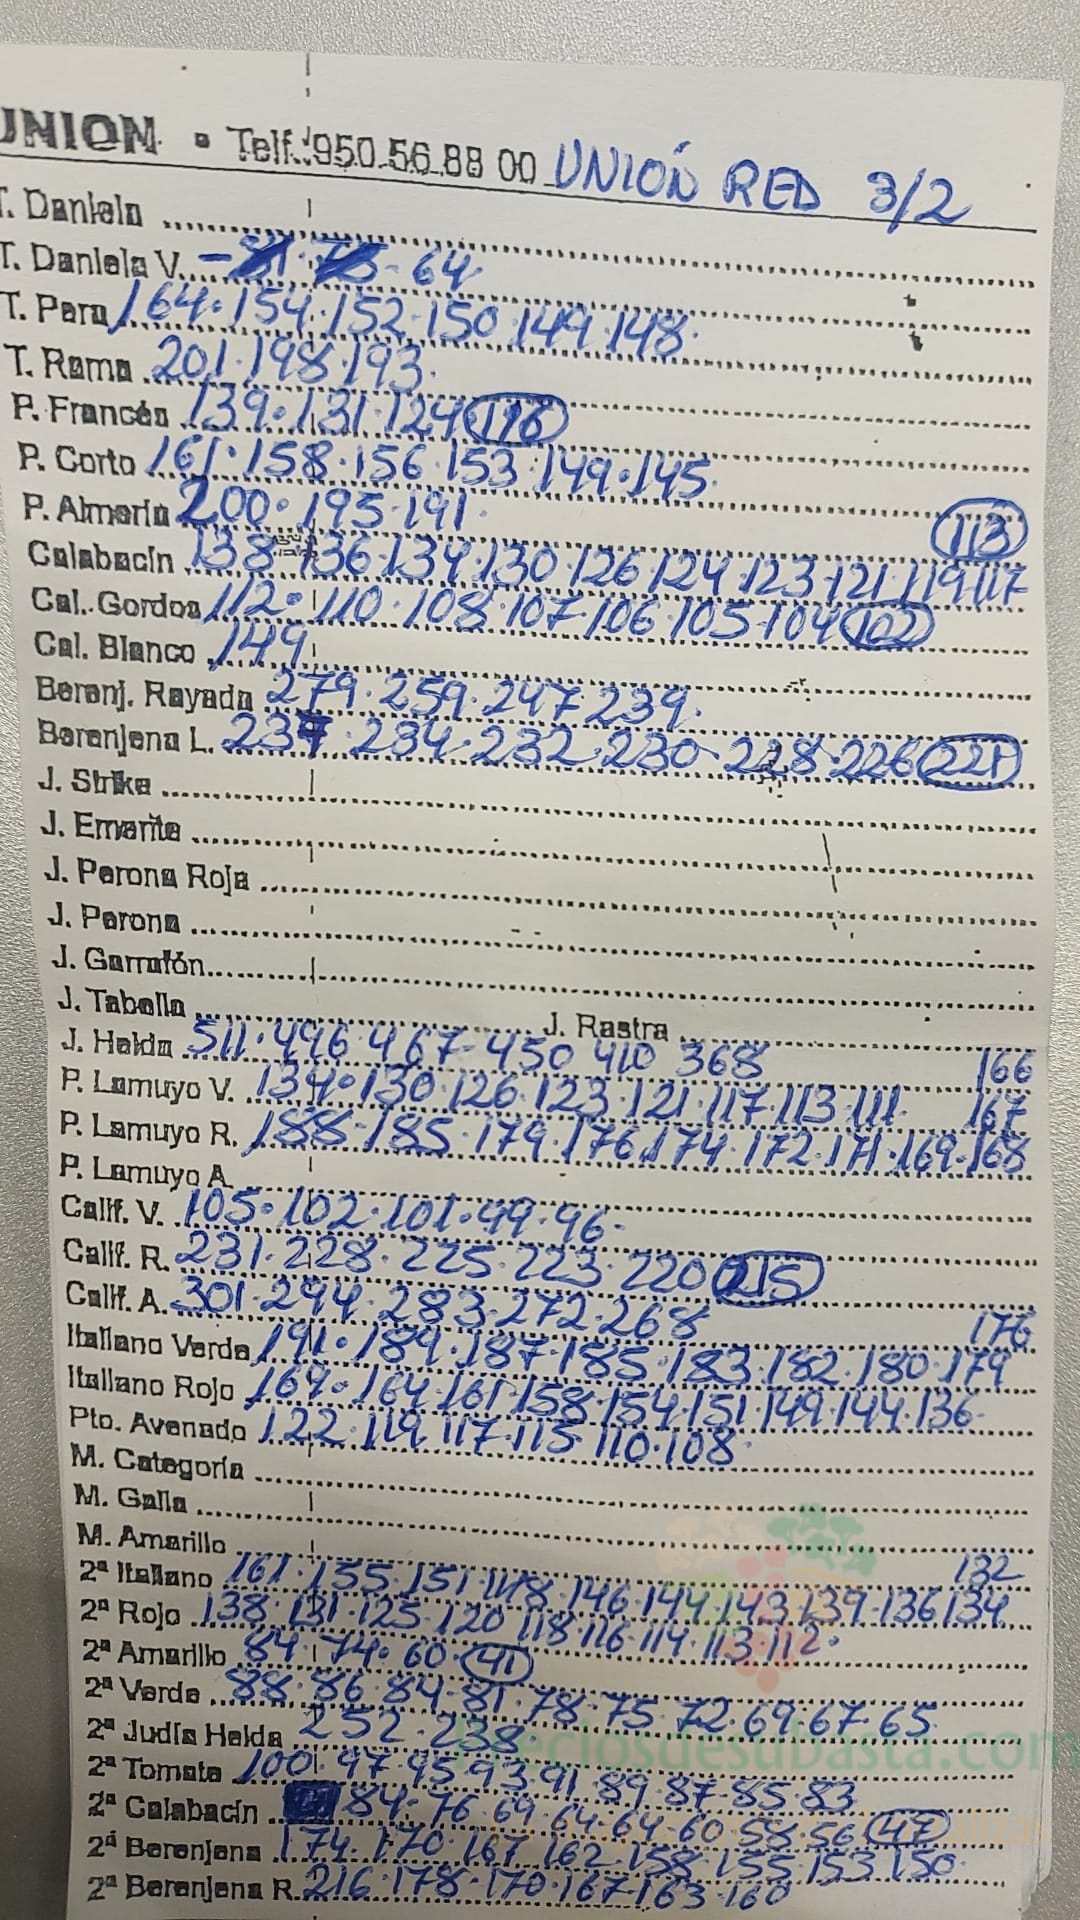 UNION • Telf. 950 56 88 00 UNIÓN RED 3/2
T. Daniela
T. Daniela V. - 64
T. Pera 164 · 154 · 152 · 150 · 149 · 148
T. Rama 201 · 198 · 193
P. Francés 139 · 131 · 124 · 116
P. Corto 161 · 158 · 156 · 153 · 149 · 145
P. Almería 200 · 195 · 191
113
Calabacín 138 · 136 · 134 · 130 · 126 · 124 · 123 · 121 · 119 · 117
Cal. Gordos 112 · 110 · 108 · 107 · 106 · 105 · 104 · 102
Cal. Blanco 149
Berenj. Rayada 279 · 259 · 247 · 239
Berenjena L. 237 · 234 · 232 · 230 · 228 · 226 · 221
J. Strike
J. Emerite
J. Perona Roja
J. Perona
J. Garrafón
J. Tabella J. Rastra
J. Helda 511 · 496 · 467 · 450 410 368
166
P. Lamuyo V. 134 · 130 · 126 · 123 · 121 · 117 · 113 · 111
167
P. Lamuyo R. 188 · 185 · 179 · 176 · 174 · 172 · 171 · 169 · 168
P. Lamuyo A.
Calif. V. 105 · 102 · 101 · 99 · 96
Calif. R. 231 · 228 · 225 · 223 · 220 215
Calif. A. 301 · 294 · 283 · 272 · 268
176
Italiano Verde 191 · 189 · 187 · 185 · 183 · 182 · 180 · 179
Italiano Rojo 169 · 164 · 161 · 158 · 154 · 151 · 149 · 144 · 136
Pto. Avenado 122 · 119 · 117 · 115 · 110 · 108
M. Categoría
M. Galia
M. Amarillo
132
2ª Italiano 161 · 155 · 151 · 148 · 146 · 144 · 143 · 139 · 136 134
2ª Rojo 138 · 131 · 125 · 120 · 118 · 116 · 114 · 113 · 112
2ª Amarillo 84 · 74 · 60 · 41
2ª Verde 88 · 86 · 84 · 81 · 78 · 75 · 72 · 69 · 67 · 65
2ª Judía Helda 252 · 238
preciosdesubasta.com
2ª Tomate 100 · 97 · 95 · 93 · 91 · 89 · 87 · 85 · 83
2ª Calabacín 84 · 76 · 69 · 64 · 64 · 60 · 58 · 56 47
2ª Berenjena 174 · 170 · 167 · 162 · 158 · 155 · 153 · 150
2ª Berenjena R. 216 · 178 · 170 · 167 · 163 · 160